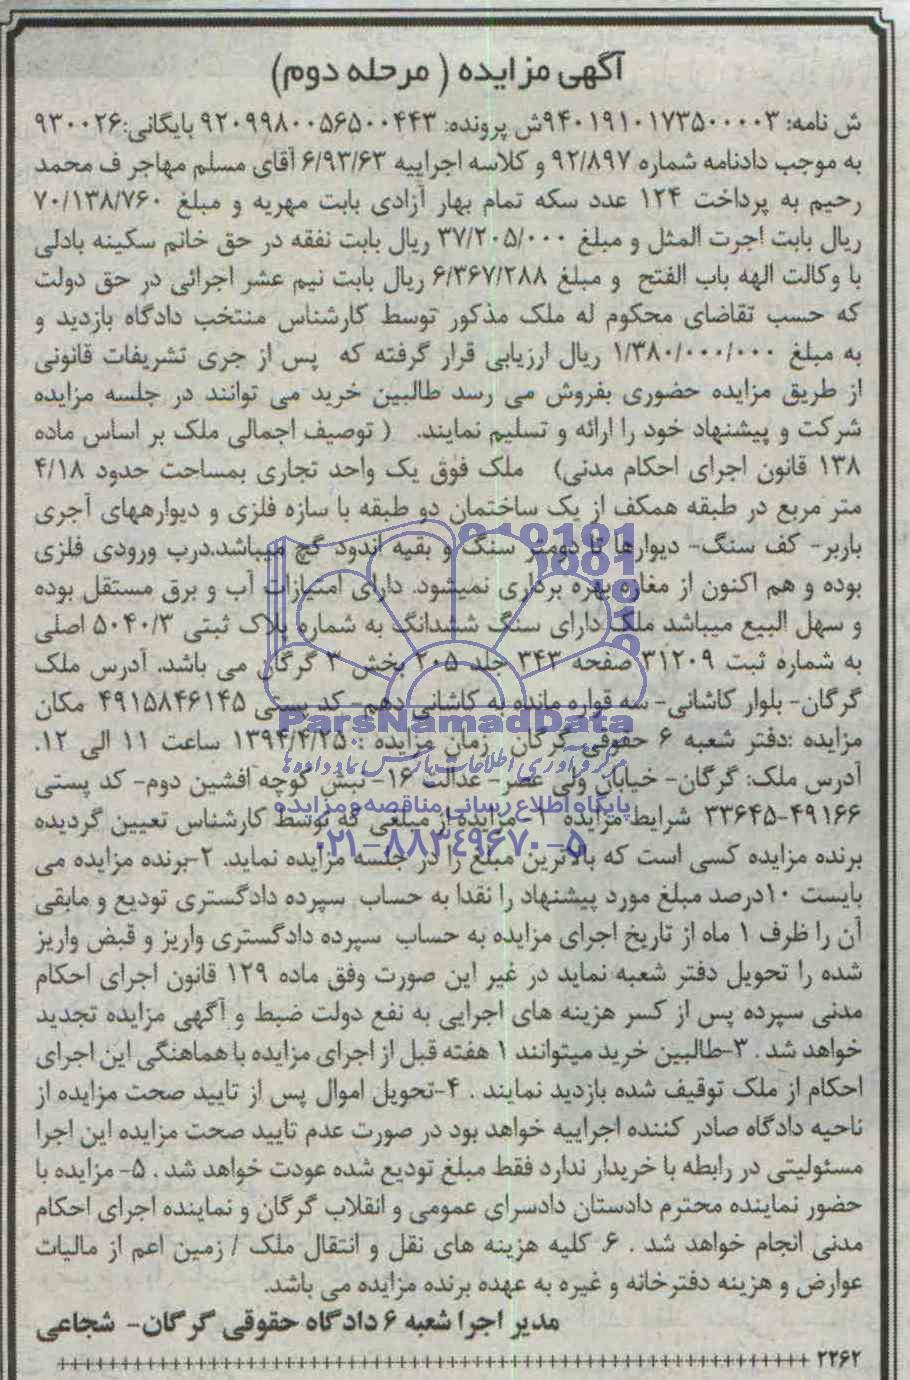 آگهی مزایده ( مرحله دوم)
ش نامه: ۹۴۰۱۹۱۰۱۷۳۵۰۰۰۰۳ش پرونده: ۹۲۰۹۹۸۰۰۵۶۵۰۰۴۴۳ بایگانی:۹۳۰۰۲۶
به موجب دادنامه شماره ۹۲/۸۹۷ و کلاسه اجراییه ۶/۹۳/۶۳ آقای مسلم مهاجر ف محمد
رحیم به پرداخت ۱۲۴ عدد سکه تمام بهار آزادی بابت مهریه و مبلغ ۷۰/۱۳۸/۷۶۰
ریال بابت اجرت المثل و مبلغ ۳۷/۲۰۵/۰۰۰ ریال بابت نفقه در حق خانم سکینه بادلی
با وکالت الهه باب الفتح و مبلغ ۶/۳۶۷/۲۸۸ ریال بابت نیم عشر اجرائی در حق دولت
که حسب تقاضای محکوم له ملک مذکور توسط کارشناس منتخب دادگاه بازدید و
به مبلغ ۱/۳۸۰/۰۰۰/۰۰۰ ریال ارزیابی قرار گرفته که پس از جری تشریفات قانونی
از طریق مزایده حضوری بفروش می رسد طالبین خرید می توانند در جلسه مزایده
شرکت و پیشنهاد خود را ارائه و تسلیم نمایند. ( توصیف اجمالی ملک بر اساس ماده
۱۳۸ قانون اجرای احکام مدنی) ملک فوق یک واحد تجاری بمساحت حدود ۴/۱۸
متر مربع در طبقه همکف از یک ساختمان دو طبقه با سازه فلزی و دیوارههای آجری
باربر- کف سنگ- دیوارها تا دومتر سنگ و بقیه اندود گچ میباشد.درب ورودی فلزی
بوده و هم اکنون از مغازه بهره برداری نمیشود. دارای امتیازات آب و برق مستقل بوده
و سهل البیع میباشد ملک دارای سنگ ششدانگ به شماره پلاک ثبتی ۵۰۴۰/۳ اصلی
به شماره ثبت ۳۱۲۰۹ صفحه ۳۴۳ جلد ۲۰۵ بخش ۳ گرگان می باشد. آدرس ملک
گرگان- بلوار کاشانی- سه قواره مانده به کاشانی دهم- کد پستی ۴۹۱۵۸۴۶۱۴۵ مکان
ParsNamadData
مزایده :دفتر شعبه ۶ حقوقی گرگان زمان مزایده :۱۳۹۴/۴/۲۵ ساعت ۱۱ الی ۱۲.
مرکز فرآوری اطلاعات پارس نماد داده ها
آدرس ملک: گرگان- خیابان ولی عصر- عدالت ۱۶- نبش کوچه افشین دوم- کد پستی
پایگاه اطلاع رسانی مناقصه و مزایده
۴۹۱۶۶-۳۳۶۴۵ شرایط مزایده ۱- مزایده از مبلغی که توسط کارشناس تعیین گردیده
۰۲۱-۸۸۳۴۹۶۷۰-۵
برنده مزایده کسی است که بالاترین مبلغ را در جلسه مزایده نماید. ۲-برنده مزایده می
بایست ۱۰درصد مبلغ مورد پیشنهاد را نقدا به حساب سپرده دادگستری تودیع و مابقی
آن را ظرف ۱ ماه از تاریخ اجرای مزایده به حساب سپرده دادگستری واریز و قبض واریز
شده را تحویل دفتر شعبه نماید در غیر این صورت وفق ماده ۱۲۹ قانون اجرای احکام
مدنی سپرده پس از کسر هزینه های اجرایی به نفع دولت ضبط و آگهی مزایده تجدید
خواهد شد . ۳-طالبین خرید میتوانند ۱ هفته قبل از اجرای مزایده با هماهنگی این اجرای
احکام از ملک توقیف شده بازدید نمایند . ۴-تحویل اموال پس از تایید صحت مزایده از
ناحیه دادگاه صادر کننده اجراییه خواهد بود در صورت عدم تایید صحت مزایده این اجرا
مسئولیتی در رابطه با خریدار ندارد فقط مبلغ تودیع شده عودت خواهد شد . ۵- مزایده با
حضور نماینده محترم دادستان دادسرای عمومی و انقلاب گرگان و نماینده اجرای احکام
مدنی انجام خواهد شد . ۶. کلیه هزینه های نقل و انتقال ملک / زمین اعم از مالیات
عوارض و هزینه دفترخانه و غیره به عهده برنده مزایده می باشد.
مدیر اجرا شعبه ۶ دادگاه حقوقی گرگان- شجاعی
۲۲۶۲